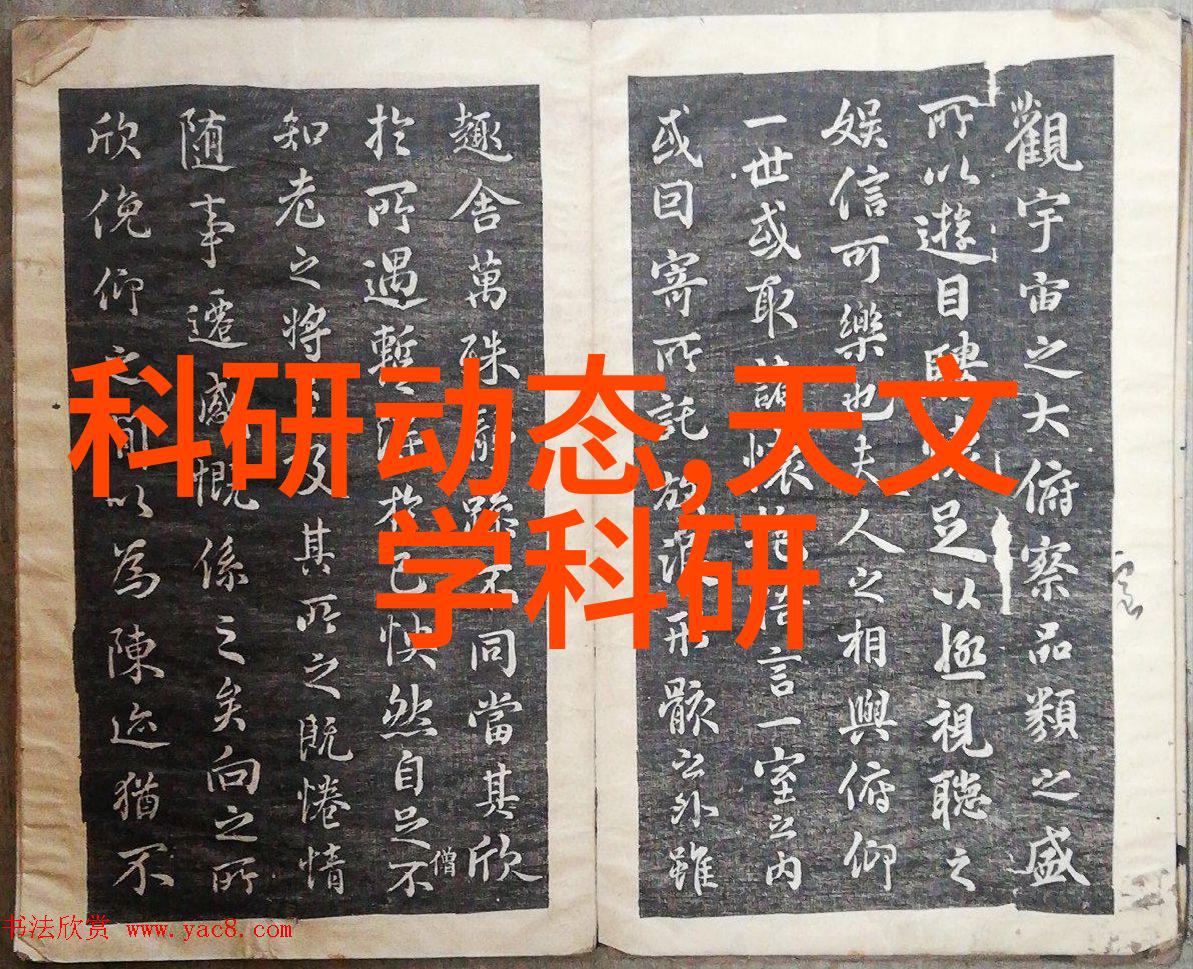 觀宇宙之大俯察品類之盛
所以遊目騁懷足以極視聽之
娛信可樂也夫人之相與俯仰
一世或取諸懷抱悟言一室之內
或因寄所託放浪形骸之外雖
趣舍萬殊靜躁不同當其欣
於所遇暫得於己怏然自足不
僧
知老之將至及其所之既惓情
随事遷感慨係之矣向之所
欣俛仰之間以為陳迹猶不
科研动态,天文
学科研
书法欣赏 www.yac8.com